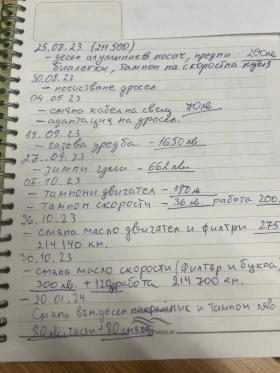 25.08.23 (211 500)
- десен алуминиев носач, предни 260лв
биалетки, тампон на скоростна кутия
30.08.23
- почистване дросел
04.09.23
- смяна кабел на свещ 70лв
- адаптация на дросел.
14.09.23
- газова уредба - 1650лв
27.09.23
- зимни гуми - 662лв.
05.10.23
- тампони двигател - 180лв
- тампон скорости - 36лв работа 200.
26.10.23
- смяна масло двигател и филтри 275
214 140 км.
30.10.23
- смяна масло скорости (филтър и букса,
300лв. + 120 работа 214 700 км.
- 20.01.24
Смяна външ. десен накрайник и тампон ляво
80лв. части + 80 смяна